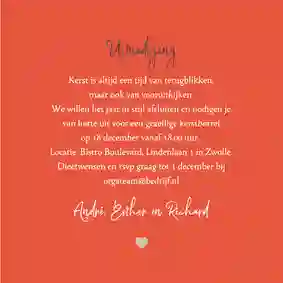 Uitnodiging
Kerst is altijd een tijd van terugblikken,
maar ook van vooruitkijken.
We willen het jaar in stijl afsluiten en nodigen je
van harte uit voor een gezellige kerstborrel
op 18 december vanaf 18.00 uur.
Locatie: Bistro Boulevard, Lindenlaan 1 in Zwolle.
Dieetwensen en rsvp graag tot 1 december bij
orgateam@bedrijf.nl
André, Esther en Richard